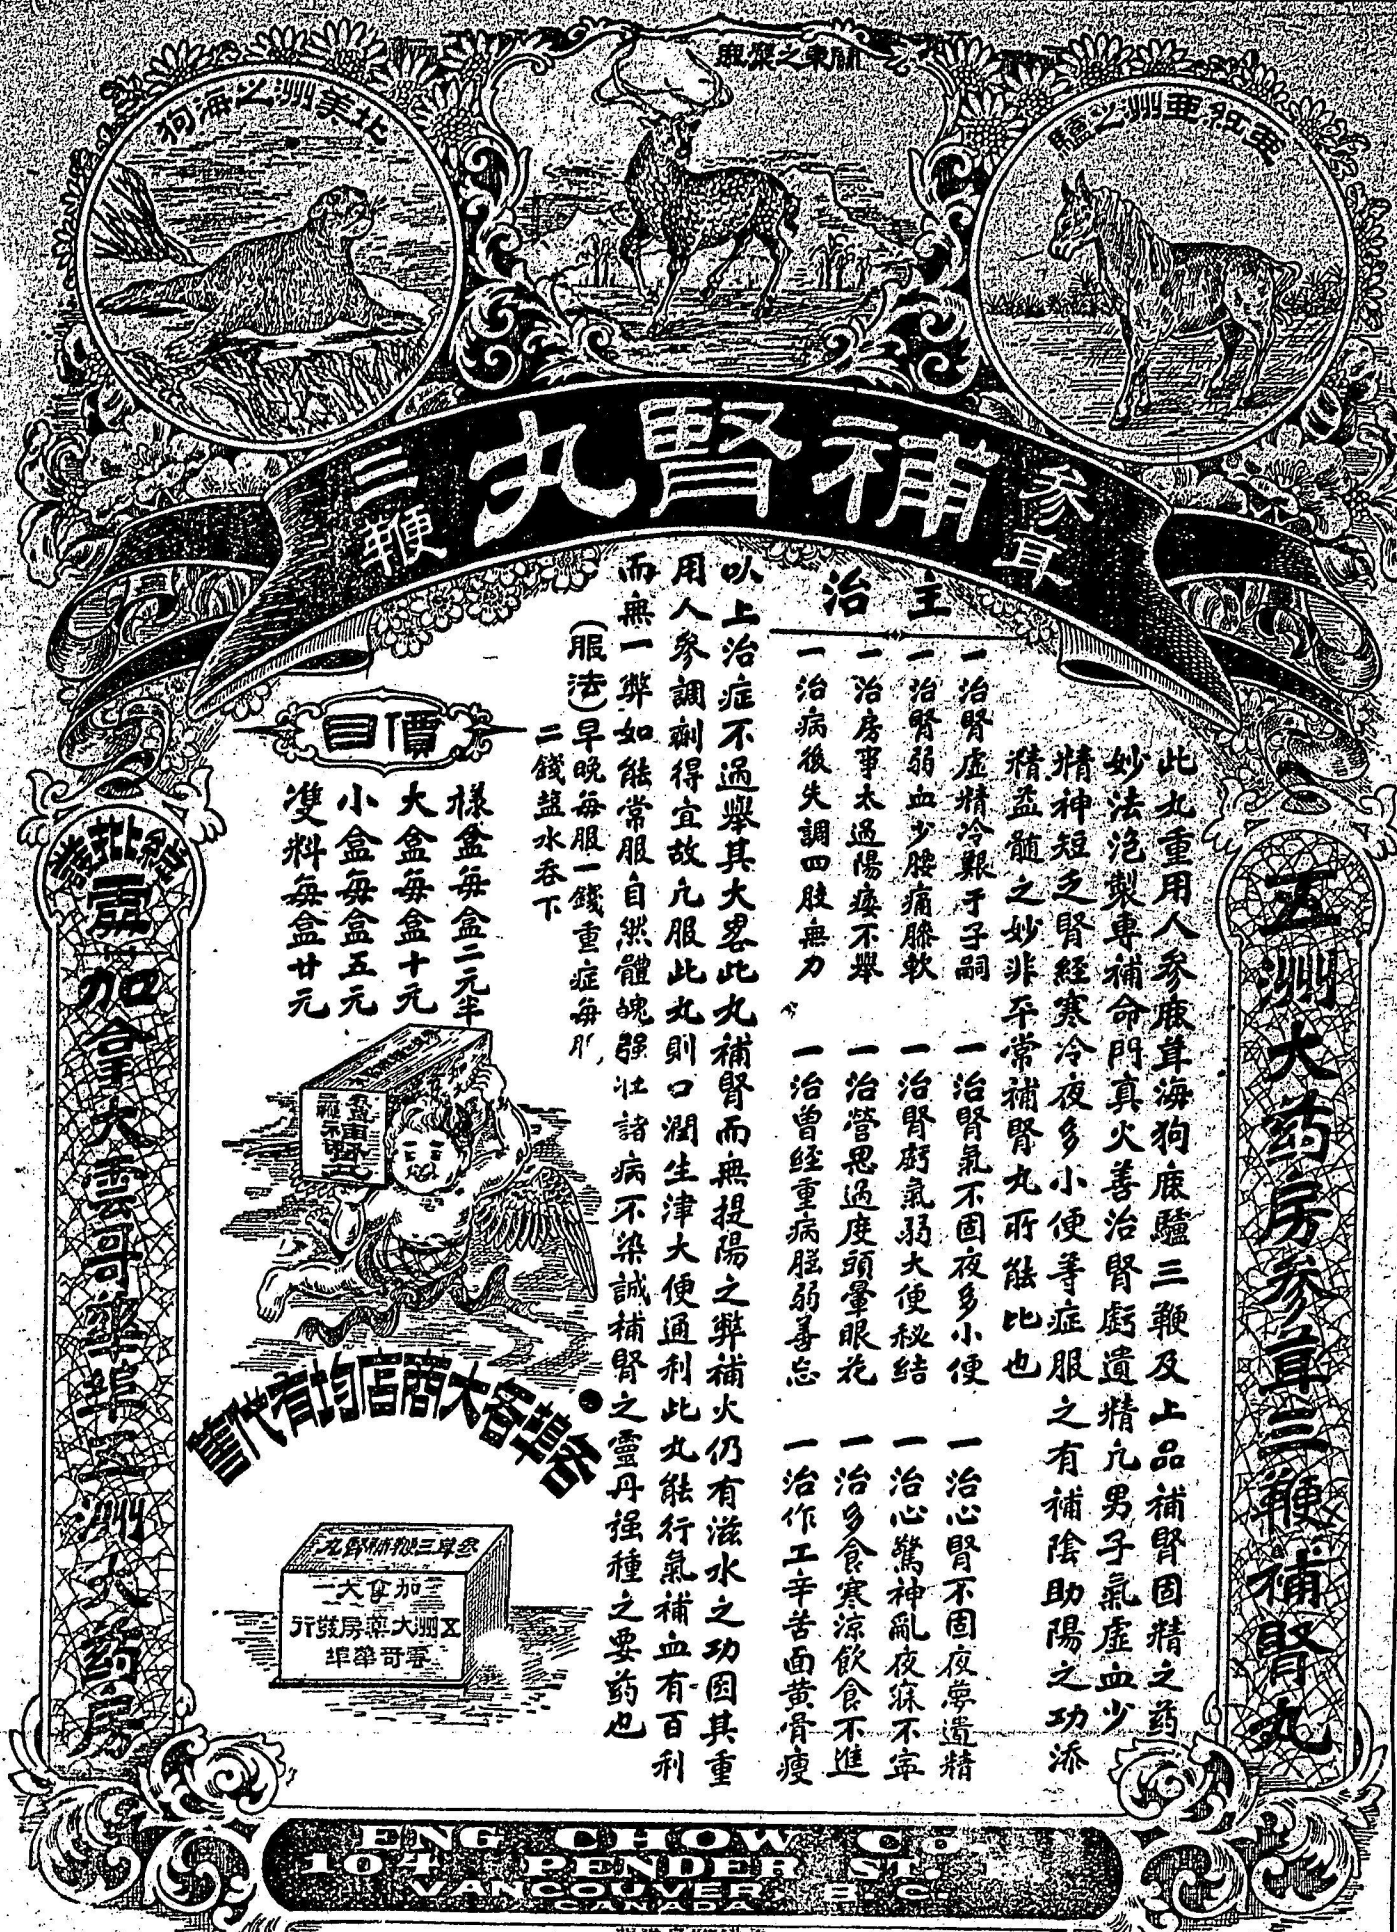 北美洲之海狗
關東之麋鹿
亞拉亞洲之驢
參茸
補腎丸
三鞭
五洲大药房參茸三鞭補腎丸
此丸重用人參鹿茸海狗鹿驢三鞭及上品補腎固精之药
妙法泡製專補命門真火善治腎虧遺精凢男子氣虛血少
精神短乏腎経寒冷夜多小便等症服之有補陰助陽之功添
精益髓之妙非平常補腎丸所能比也
主治
一治腎虛精冷艱于子嗣
一治腎氣不固夜多小便
一治心腎不固夜夢遺精
一治腎弱血少腰痛膝軟
一治腎虧氣弱大便秘結
一治心驚神亂夜寐不寧
一治房事太過陽痿不舉
一治營思過度頭暈眼花
一治多食寒涼飲食不進
一治病後失調四肢無力
一治曾経重病胵弱善忘
一治作工辛苦面黄骨瘦
以上治症不過舉其大畧此丸補腎而無提陽之弊補火仍有滋水之功因其重
用人參調劑得宜故凢服此丸則口潤生津大便通利此丸能行氣補血有百利
而無一弊如能常服自然體魄强壮諸病不染誠補腎之靈丹强種之要药也
(服法)早晚每服一錢重症每服
二錢鹽水吞下
價目
樣盒每盒二元半
大盒每盒十元
小盒每盒五元
雙料每盒廿元
各埠各大商店均有代售
參茸三鞭補腎丸
加拿大
五洲大藥房發行
雲哥華埠
總批發處
加拿大雲哥華埠五洲大药房
ENG CHOW Co.
104 PENDER ST.
VANCOUVER, B.C.
CANADA